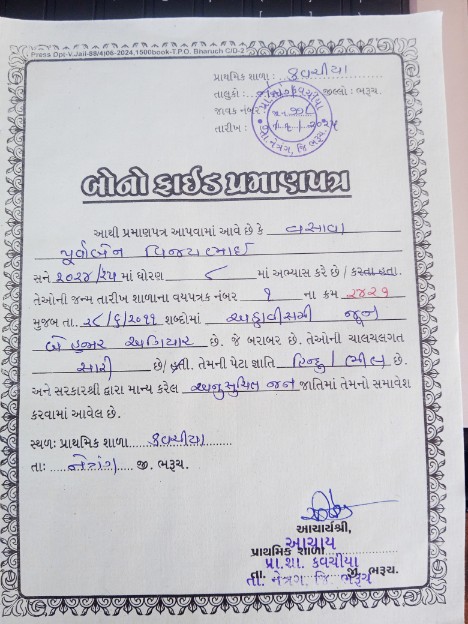 Press Opt-v.Jail-88/4)06-2024,1500book-T.P.O. Bharuch C/D-2
પ્રાથમિક શાળા : કવચીયા
તાલુકો : જીલ્લો : ભરૂચ.
જાવક નંબર
તારીખ : ૨૦૨૫
પ્રા. શા. કવચીયા
તા. નેત્રંગ, જિ. ભરૂચ.
બોનો ફાઈડ પ્રમાણપત્ર
આથી પ્રમાણપત્ર આપવામાં આવે છે કે વસાવા
પૂર્વાબેન વિજયભાઈ
સને ૨૦૨૪/૨૫ માં ધોરણ ૮ માં અભ્યાસ કરે છે / કરતા હતા.
તેઓની જન્મ તારીખ શાળાના વયપત્રક નંબર ૧ ના ક્રમ ૨૪૨૧
મુજબ તા. ૨૮/૬/૨૦૧૧ શબ્દોમાં અઠ્ઠાવીસમી જૂન
બે હજાર અગિયાર છે. જે બરાબર છે. તેઓની ચાલચલગત
સારી છે/ હતી. તેમની પેટા જ્ઞાતિ હિન્દુ / ભીલ છે.
અને સરકારશ્રી દ્વારા માન્ય કરેલ અનુસુચિત જન જાતિમાં તેમનો સમાવેશ
કરવામાં આવેલ છે.
સ્થળઃ પ્રાથમિક શાળા કવચીયા
તાઃ નેત્રંગ જી. ભરૂચ.
આચાર્યશ્રી,
આચાય
પ્રાથમિક શાળા
પ્રા.શા. કવચીયા
તા. જી. ભરૂચ.
તા. નેત્રગ જિ ભરૂચ